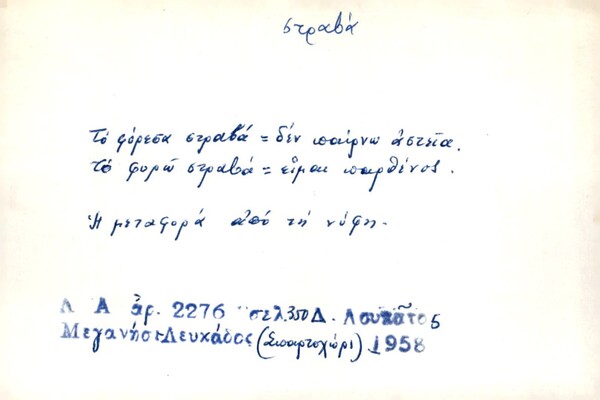 στραβά
Τό φόρεσα στραβά = δέν παίρνω ἀστεῖα.
Τό φορῶ στραβά = εἶμαι παρθένος.
Ἡ μεταφορά ἀπό τή νύφη.
Λ Α ἀρ. 2276 σελ. 350 Δ. Λουκᾶτος
Μεγανήσι Λευκάδος (Σπαρτοχώρι) 1958